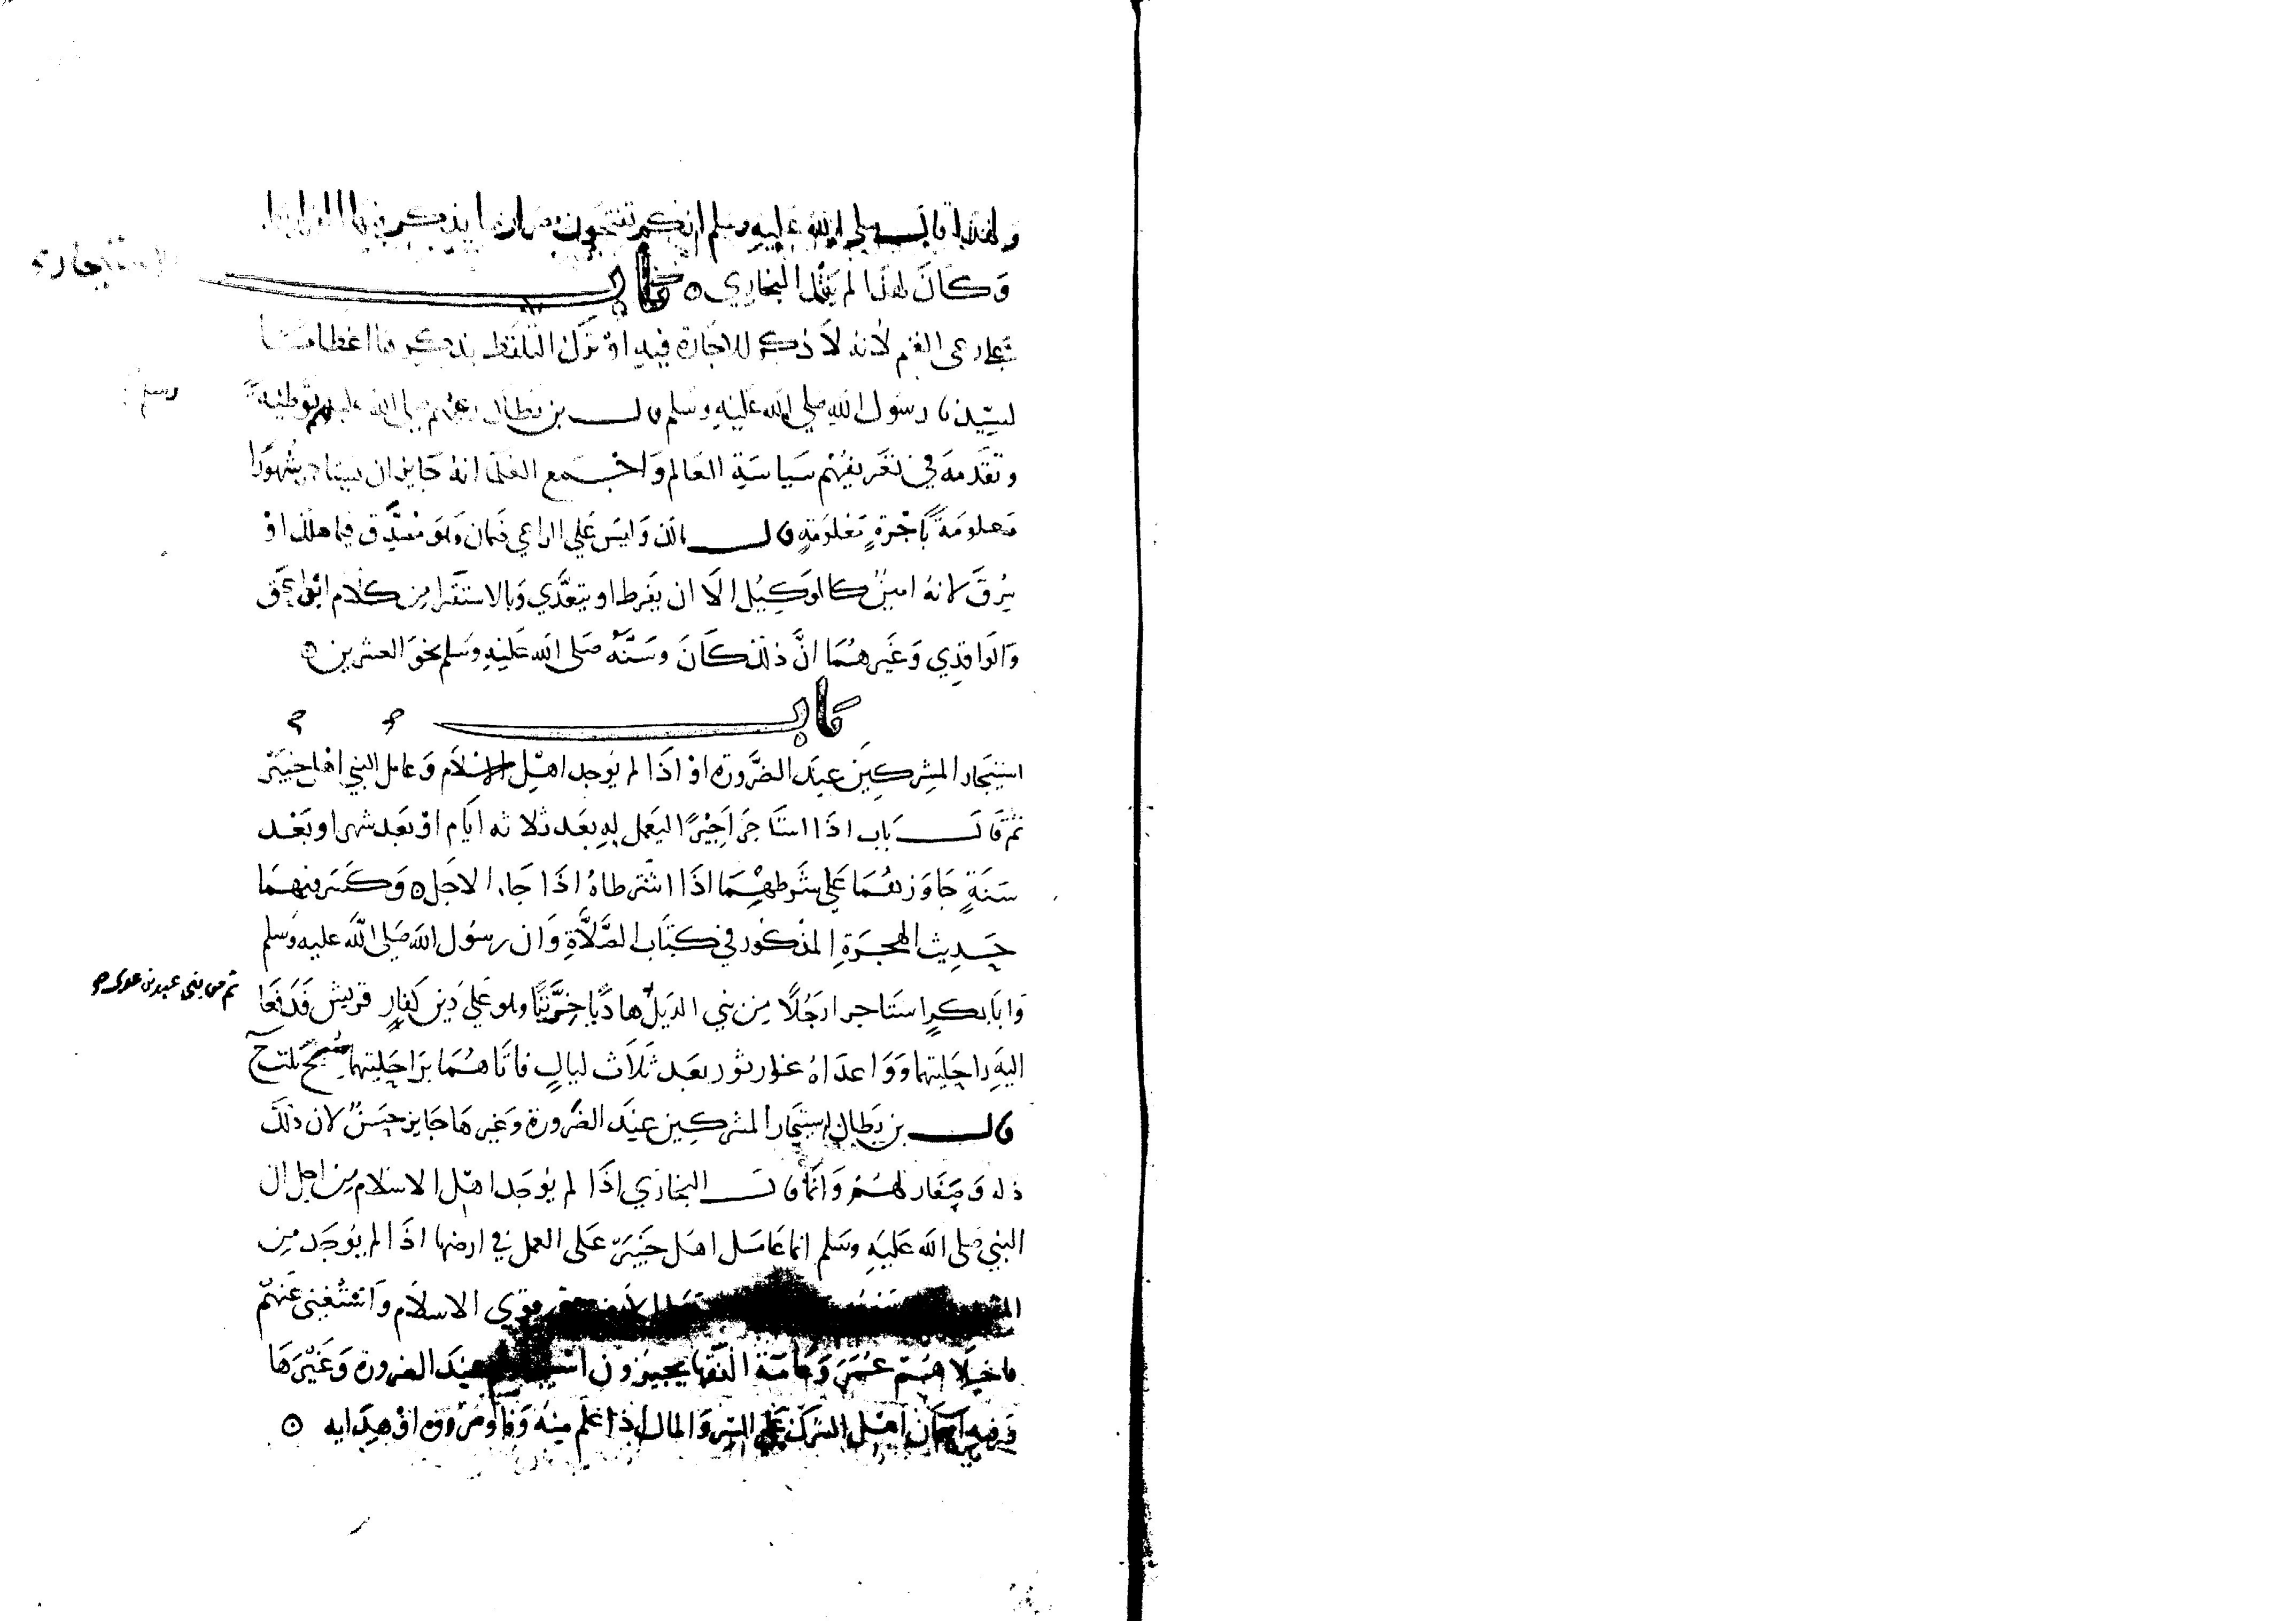 ولهذا قال صلي الله عليه وسلم انكم تفتحون مصر ارضا يذكر فيها القيراط
وكان لهذا لم يقل البخاري ٥ باب
الاستئجار
على رعي الغنم لانه لا ذكر للاجارة فيه او ترك التلفظ بذكرها اعظاما
لسيدنا رسول الله صلي الله عليه وسلم قال بن بطال رعيهم صلي الله عليهم توطئة
وسلم
وتقدمه في تعريفهم سياسة العالم واجمع العلما انه جايز ان يستاجر شهورا
معلومة باجرة معلومة قال مالك وليس علي الراعي ضمان وهو مصدق فيما هلك او
سرق لانه امين كالوكيل الا ان يفرط او يتعدي وبالاستقرا من كلام
والواقدي وغيرهما ان ذلك كان وسنه صلى الله عليه وسلم نحو العشرين ٥
باب
استيجار المشركين عند الضرورة او اذا لم يوجد اهل الاسلام وعامل النبي اهل خيبر
ثم قال باب اذا استاجر اجيرا ليعمل له بعد ثلاثه ايام او بعد شهر او بعد
سنة جاز وهما علي شرطهما اذا اشترطاه اذا جاء الاجل ٥ وكتب فيهما
حديث الهجرة المذكور في كتاب الصلاة وان رسول الله صلى الله عليه وسلم
وابا بكر استاجرا رجلا من بني الديل هاديا خريتا وهو علي دين كفار قريش فدفعا
ثم من بني عبد بن عدي
اليه راحلتيهما وواعداه غار ثور بعد ثلاث ليال فاتاهما براحلتيهما صبح ثلث
قال بن بطال استيجار المشركين عند الضرورة وغيرها جايز حسن لان ذلك
ذله وصغار لهم وانما قال البخاري اذا لم يوجد اهل الاسلام من اجل ان
النبي صلى الله عليه وسلم انما عامل اهل خيبر على العمل في ارضها اذا لم يوجد من
قوي الاسلام واستغنى عنهم
فاجلاهم عمر وعامة الفقها يجيزون عند الضرورة وغيرها
وفيه اهل الشرك علي السر والمال اذا علم منه وفا ومروة او هدايه ٥